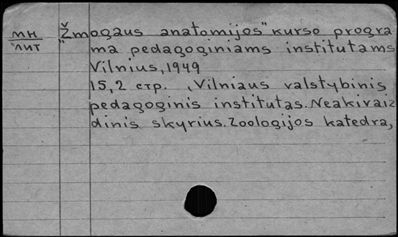 мн
лит
"Žmogaus anatomijos" kurso progra
ma pedagoginiams institutams
Vilnius, 1949
15,2 стр. , Vilniaus valstybinis
pedagoginis institutas. Neakivaiz
dinis skyrius. Zoologijos katedra,